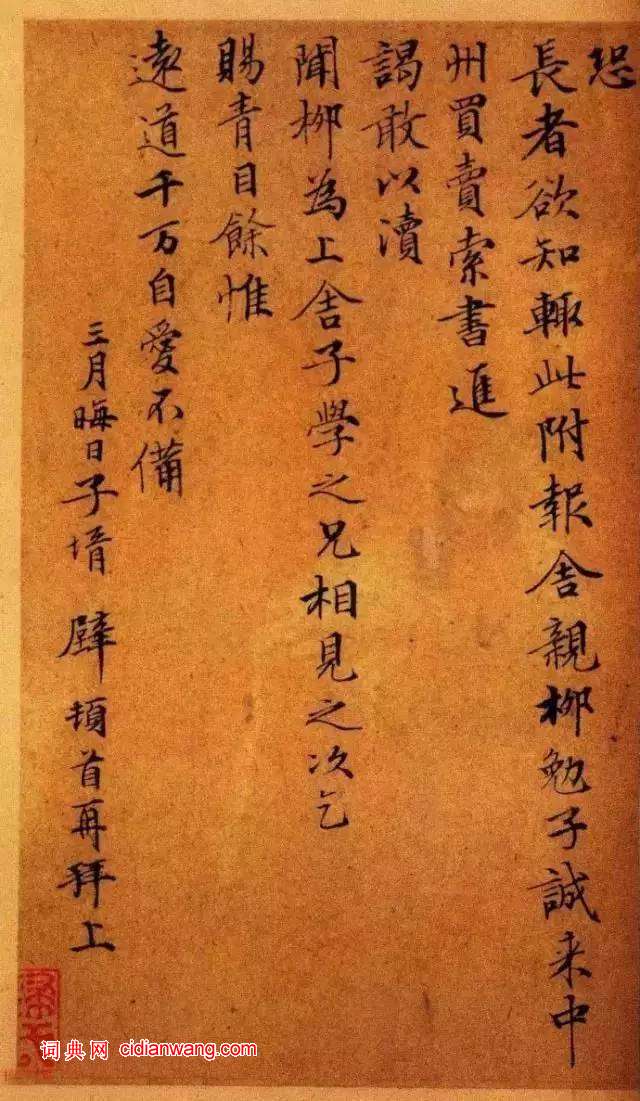 恐
長者欲知輙此附報舍親柳勉子誠来中
州買賣索書進
謁敢以瀆
聞柳為上舍子學之兄相見之次乞
賜青目餘惟
遠道千万自愛不備
三月晦日子壻 壁 頓首再拜上
词典网 cidianwang.com